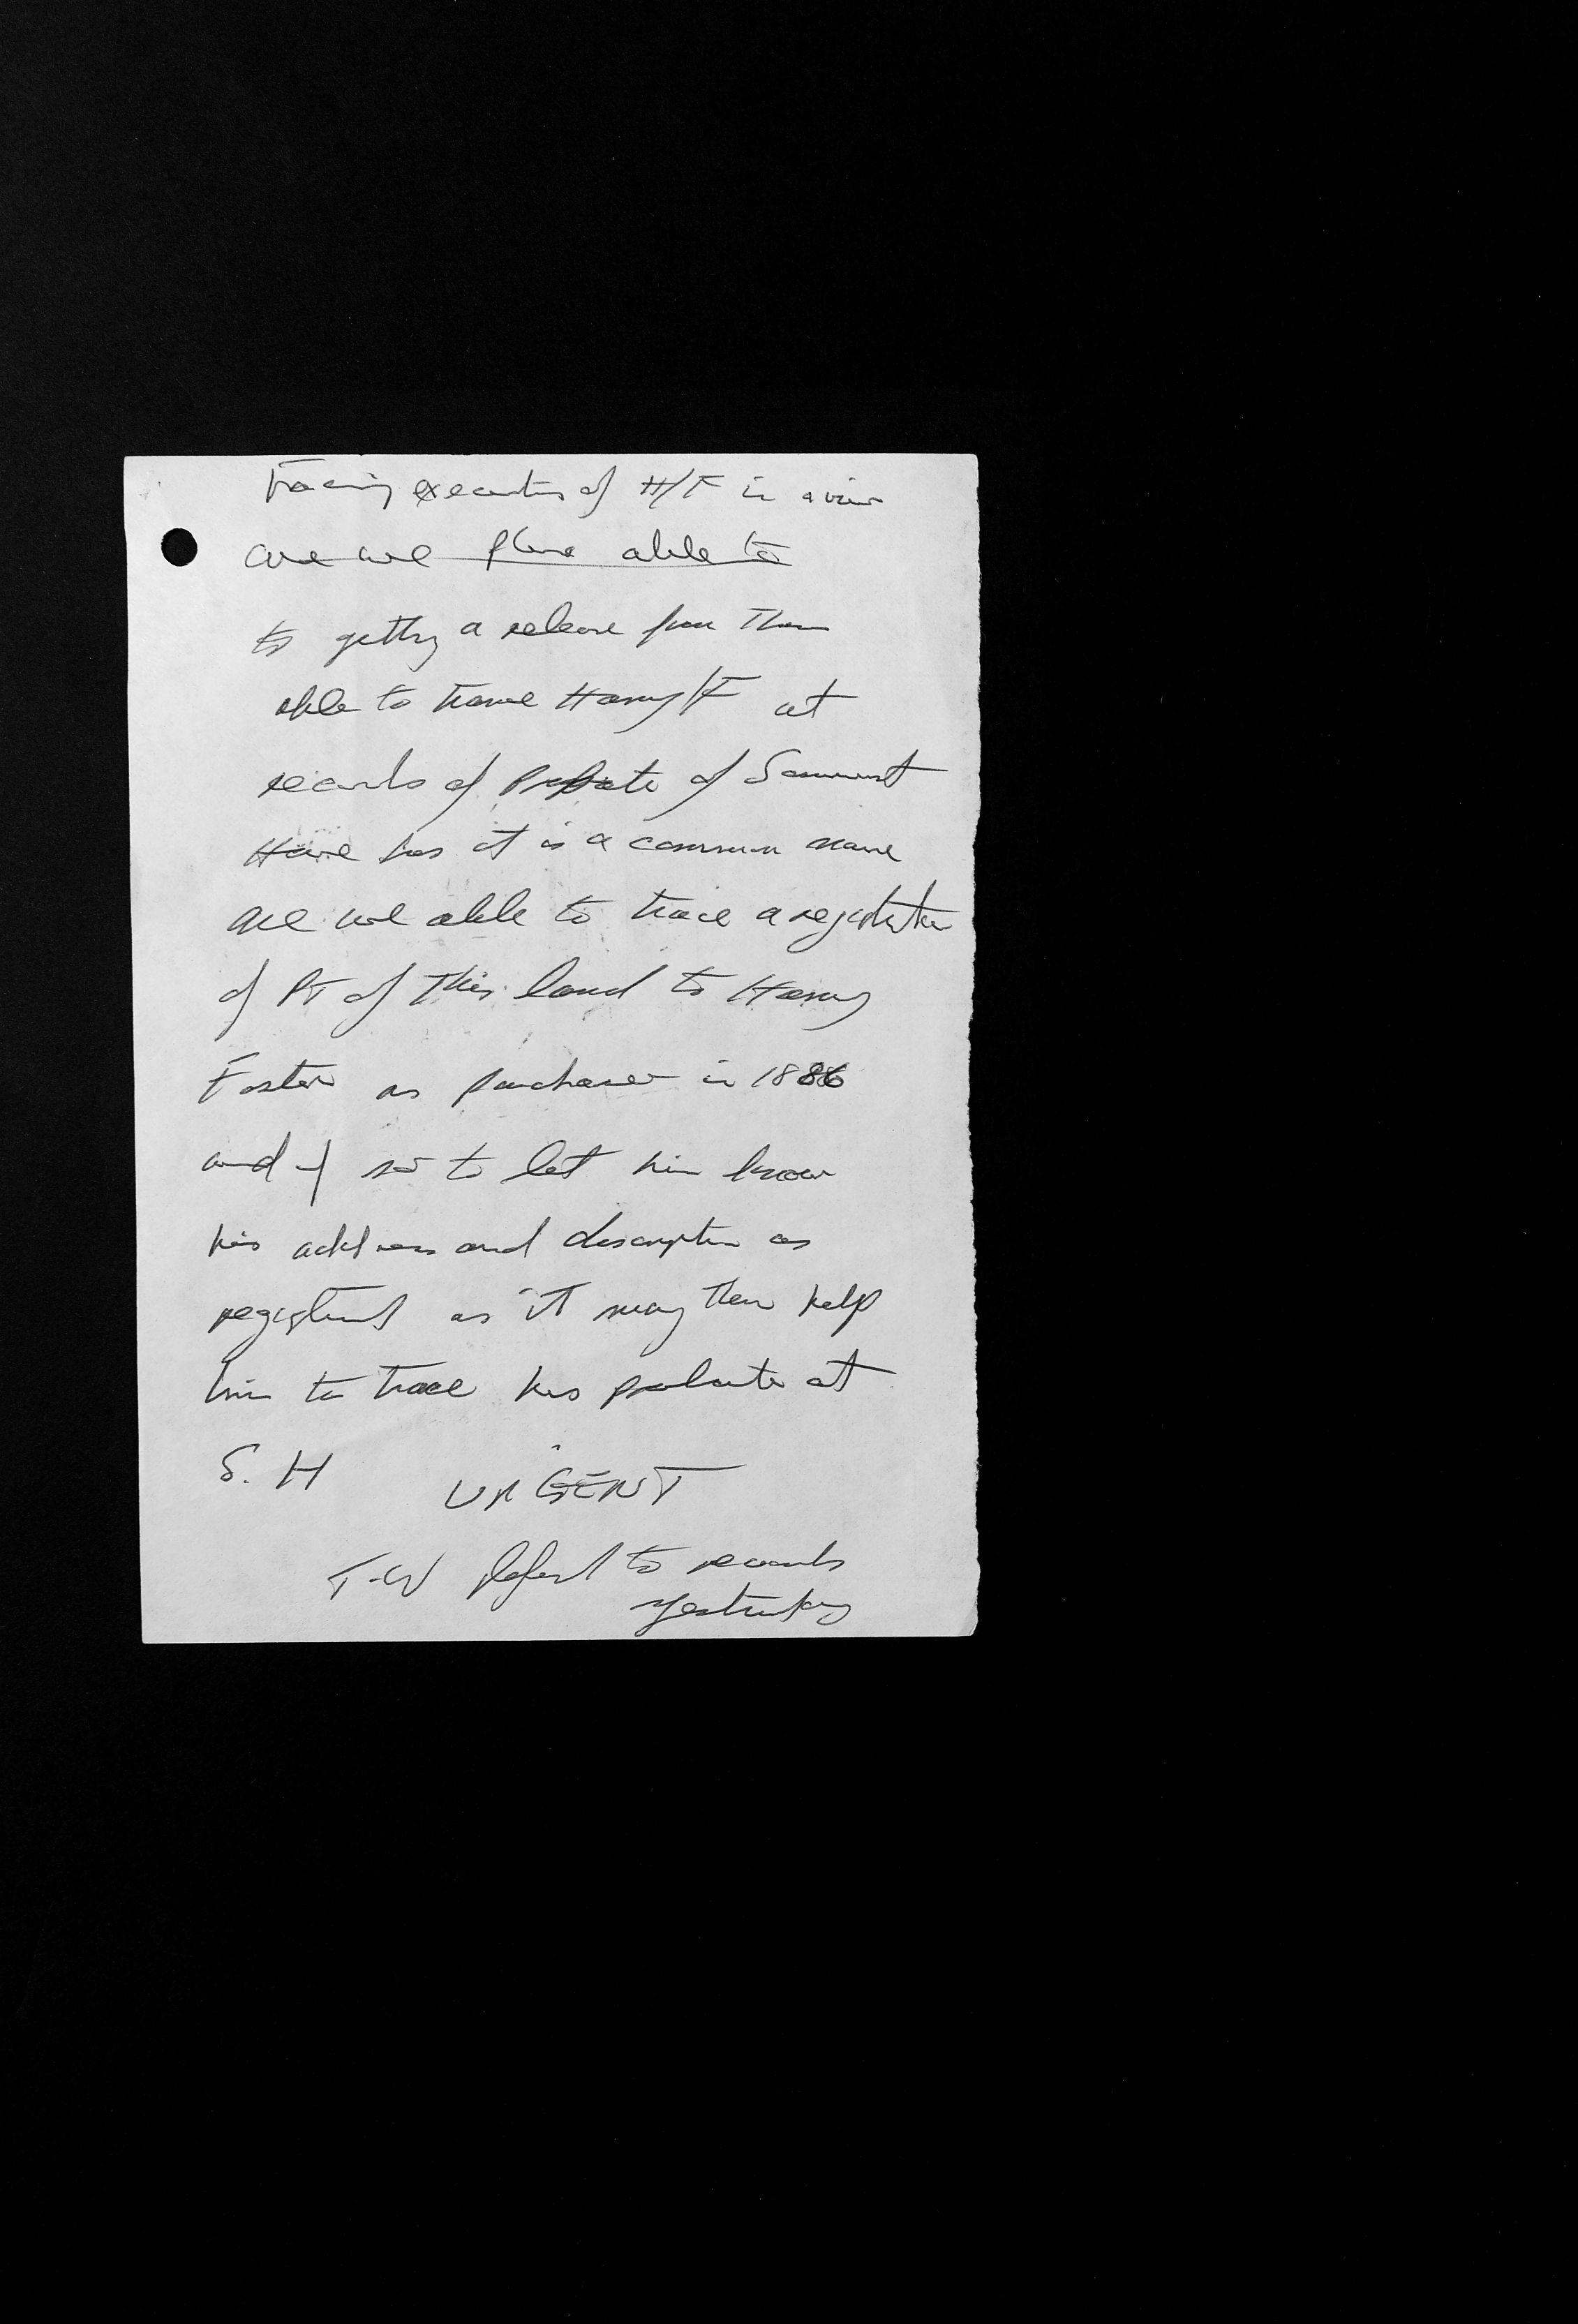 Tracing executors of H/F in a view
are we please able to
to getting a release from them
able to trace Harry/F at
records of Probate of Somerset
House has it is a common name
are we able to trace a registration
of PT of this land to Harry
Foster as purchaser in 1886
and if so to let him know
his address and description as
registered as it may then help
him to trace his probate at
S. H URGENT
T-W Referred to records
yesterday